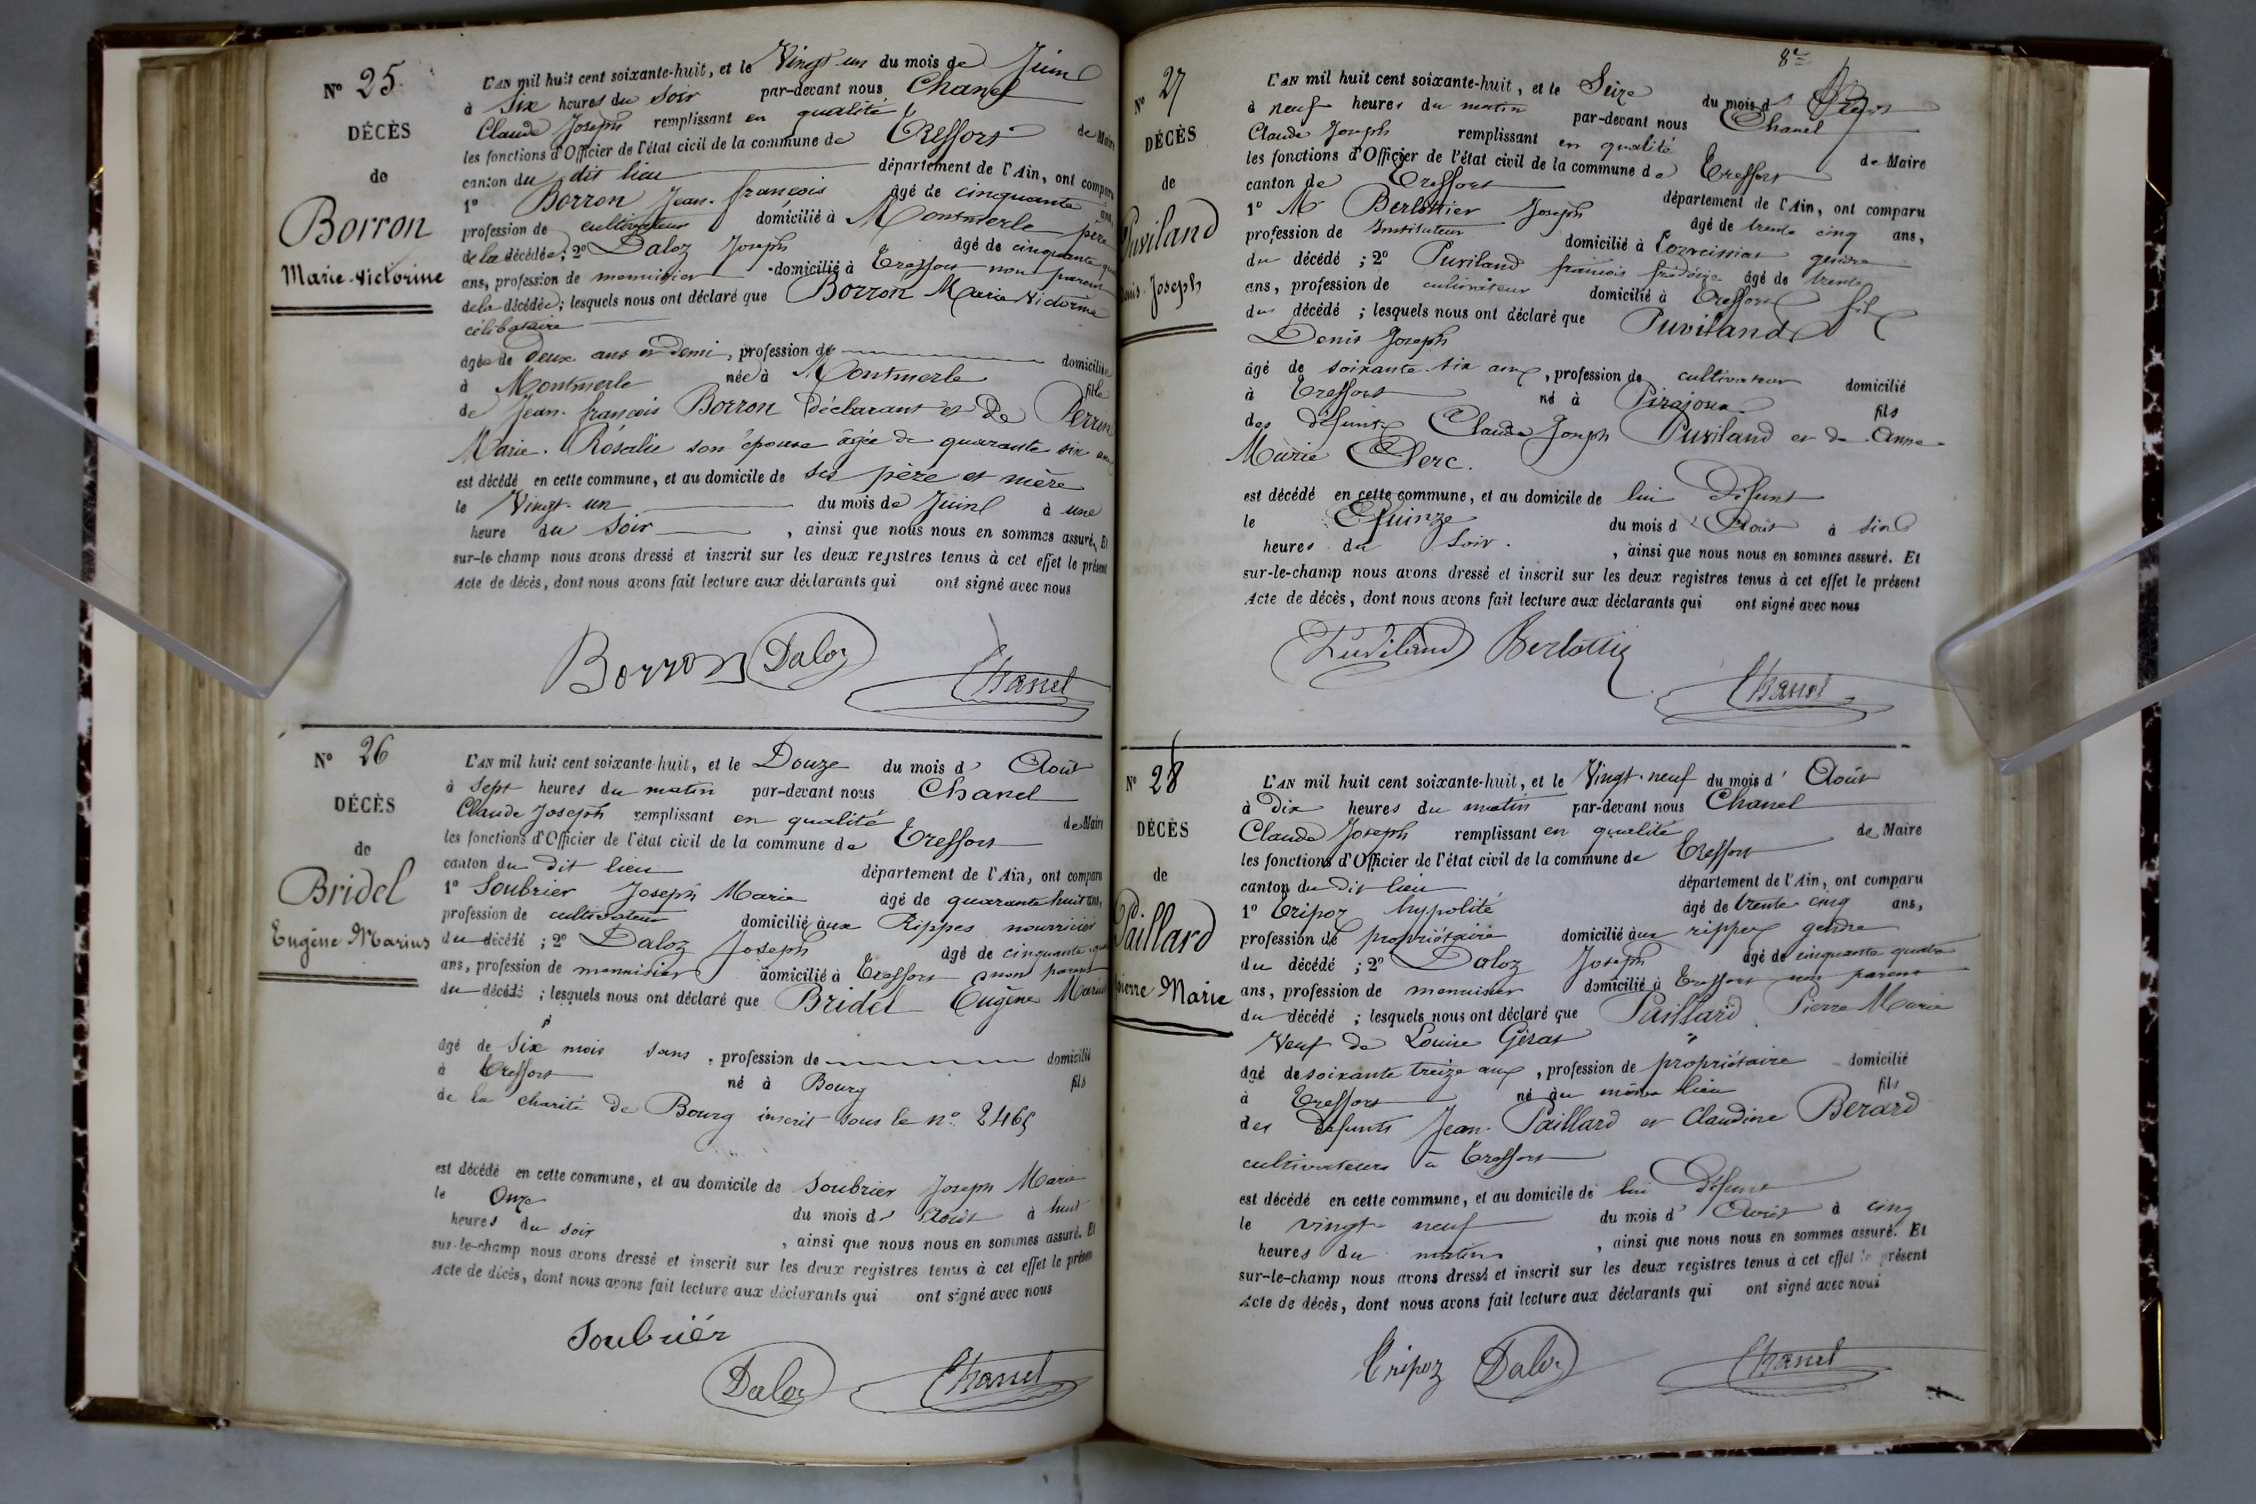 N° 25.
DÉCÈS
de
Borron
Marie-Victorine
L'AN mil huit cent soixante-huit, et le Vingt un du mois de Juin
à Six heures du Soir par-devant nous Chanel
Claude Joseph remplissant en qualité de Maire
les fonctions d'Officier de l'état civil de la commune de Treffort
canton du dit lieu département de l'Ain, ont comparu
1° Borron Jean-françois âgé de cinquante ans,
profession de cultivateur domicilié à Montmerle père
de la décédée; 2° Daloz Joseph âgé de cinquante
ans, profession de menuisier domicilié à Treffort non parent
de la décédée; lesquels nous ont déclaré que Borron Marie Victorine
célibataire
âgée de deux ans et demi, profession de domiciliée
à Montmerle née à Montmerle fille
de Jean-françois Borron déclarant et de Perrin
Marie-Rosalie son épouse âgée de quarante six ans
est décédé en cette commune, et au domicile de ses père et mère
le Vingt-un du mois de Juin à une
heure du Soir, ainsi que nous nous en sommes assuré. Et
sur-le-champ nous avons dressé et inscrit sur les deux registres tenus à cet effet le présent
Acte de décès, dont nous avons fait lecture aux déclarants qui ont signé avec nous
Borron Daloz Chanel
N° 26
DÉCÈS
de
Bridel
Eugène Marius
L'AN mil huit cent soixante-huit, et le Douze du mois d' Août
à Sept heures du matin par-devant nous Chanel
Claude Joseph remplissant en qualité de Maire
les fonctions d'Officier de l'état civil de la commune de Treffort
canton du dit lieu département de l'Ain, ont comparu
1° Soubrier Joseph Marie âgé de quarante huit ans,
profession de cultivateur domicilié aux Rippes nourricier
du décédé; 2° Daloz Joseph âgé de cinquante
ans, profession de menuisier domicilié à Treffort non parent
du décédé; lesquels nous ont déclaré que Bridel Eugène Marius
âgé de Six mois sans, profession de domicilié
à Treffort né à Bourg fils
de la charité de Bourg inscrit sous le n° 2465
est décédé en cette commune, et au domicile de Soubrier Joseph Marie
le Onze du mois d' Août à huit
heures du soir, ainsi que nous nous en sommes assuré. Et
sur-le-champ nous avons dressé et inscrit sur les deux registres tenus à cet effet le présent
Acte de décès, dont nous avons fait lecture aux déclarants qui ont signé avec nous
Soubriér
Daloz Chanel
8e
N° 27
DÉCÈS
de
Puviland
Denis-Joseph
L'AN mil huit cent soixante-huit, et le Seize du mois d' Août
à neuf heures du matin par-devant nous Chanel
Claude Joseph remplissant en qualité de Maire
les fonctions d'Officier de l'état civil de la commune de Treffort
canton de Treffort département de l'Ain, ont comparu
1° Mr Berlottier Joseph âgé de trente cinq ans,
profession de Instituteur domicilié à gendre
du décédé; 2° Puviland françois frédéric âgé de trente
ans, profession de cultivateur domicilié à Treffort fils
du décédé; lesquels nous ont déclaré que Puviland
Denis Joseph
âgé de soixante-six ans, profession de cultivateur domicilié
à Treffort né à Pirajoux fils
des défunts Claude Joseph Puviland et de Anne
Marie Clerc.
est décédé en cette commune, et au domicile de lui défunt
le Quinze du mois d' Août à six
heures du Soir., ainsi que nous nous en sommes assuré. Et
sur-le-champ nous avons dressé et inscrit sur les deux registres tenus à cet effet le présent
Acte de décès, dont nous avons fait lecture aux déclarants qui ont signé avec nous
Puviland Berlottier
Chanel
N° 28
DÉCÈS
de
Paillard
Pierre Marie
L'AN mil huit cent soixante-huit, et le Vingt-neuf du mois d' Août
à Dix heures du matin par-devant nous Chanel
Claude Joseph remplissant en qualité de Maire
les fonctions d'Officier de l'état civil de la commune de Treffort
canton du dit lieu département de l'Ain, ont comparu
1° Tripoz hypolité âgé de trente-cinq ans,
profession de propriétaire domicilié aux rippes gendre
du décédé; 2° Daloz Joseph âgé de cinquante quatre
ans, profession de menuisier domicilié à Treffort non parent
du décédé; lesquels nous ont déclaré que Paillard Pierre Marie
Veuf de Louise Gérat
âgé de soixante treize ans, profession de propriétaire domicilié
à Treffort né au même lieu fils
des défunts Jean-Paillard et Claudine Berard
cultivateurs à Treffort
est décédé en cette commune, et au domicile de lui défunt
le vingt-neuf du mois d' Août à cinq
heures du matin, ainsi que nous nous en sommes assuré. Et
sur-le-champ nous avons dressé et inscrit sur les deux registres tenus à cet effet le présent
Acte de décès, dont nous avons fait lecture aux déclarants qui ont signé avec nous
Tripoz Daloz Chanel